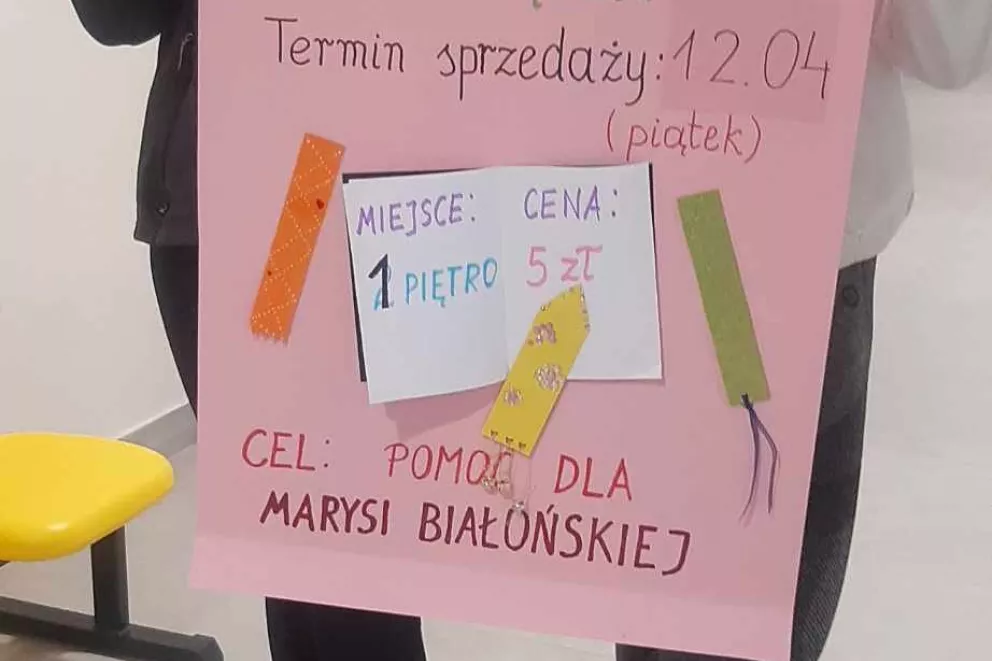 Termin sprzedaży: 12.04
(piątek)
MIEJSCE:
1 PIĘTRO
CENA:
5 zł
CEL: POMOC DLA
MARYSI BIAŁOŃSKIEJ